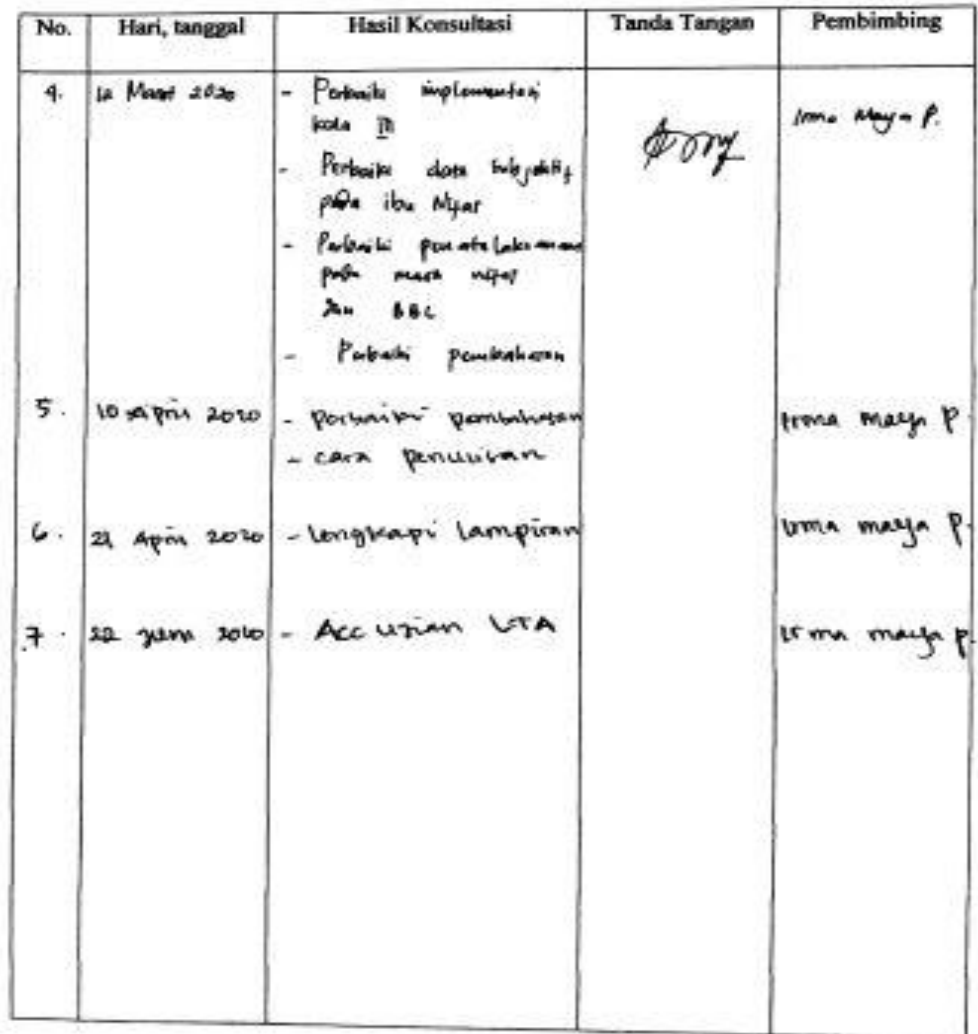 No. Hari, tanggal Hasil Konsultasi Tanda Tangan Pembimbing
4. 12 Maret 2020 - Perbaiki implementasi Irma Maya P.
kala III
- Perbaiki data subjektif
pada ibu Nifas
- Perbaiki penatalaksanaan
pada masa nifas
dan BBL
- Perbaiki pembahasan
5. 10 April 2020 - Perbaiki pembahasan Irma Maya P
- cara penulisan
6. 21 April 2020 - lengkapi lampiran Irma maya P.
7. 22 Juni 2020 - Acc Ujian LTA Irma maya p.